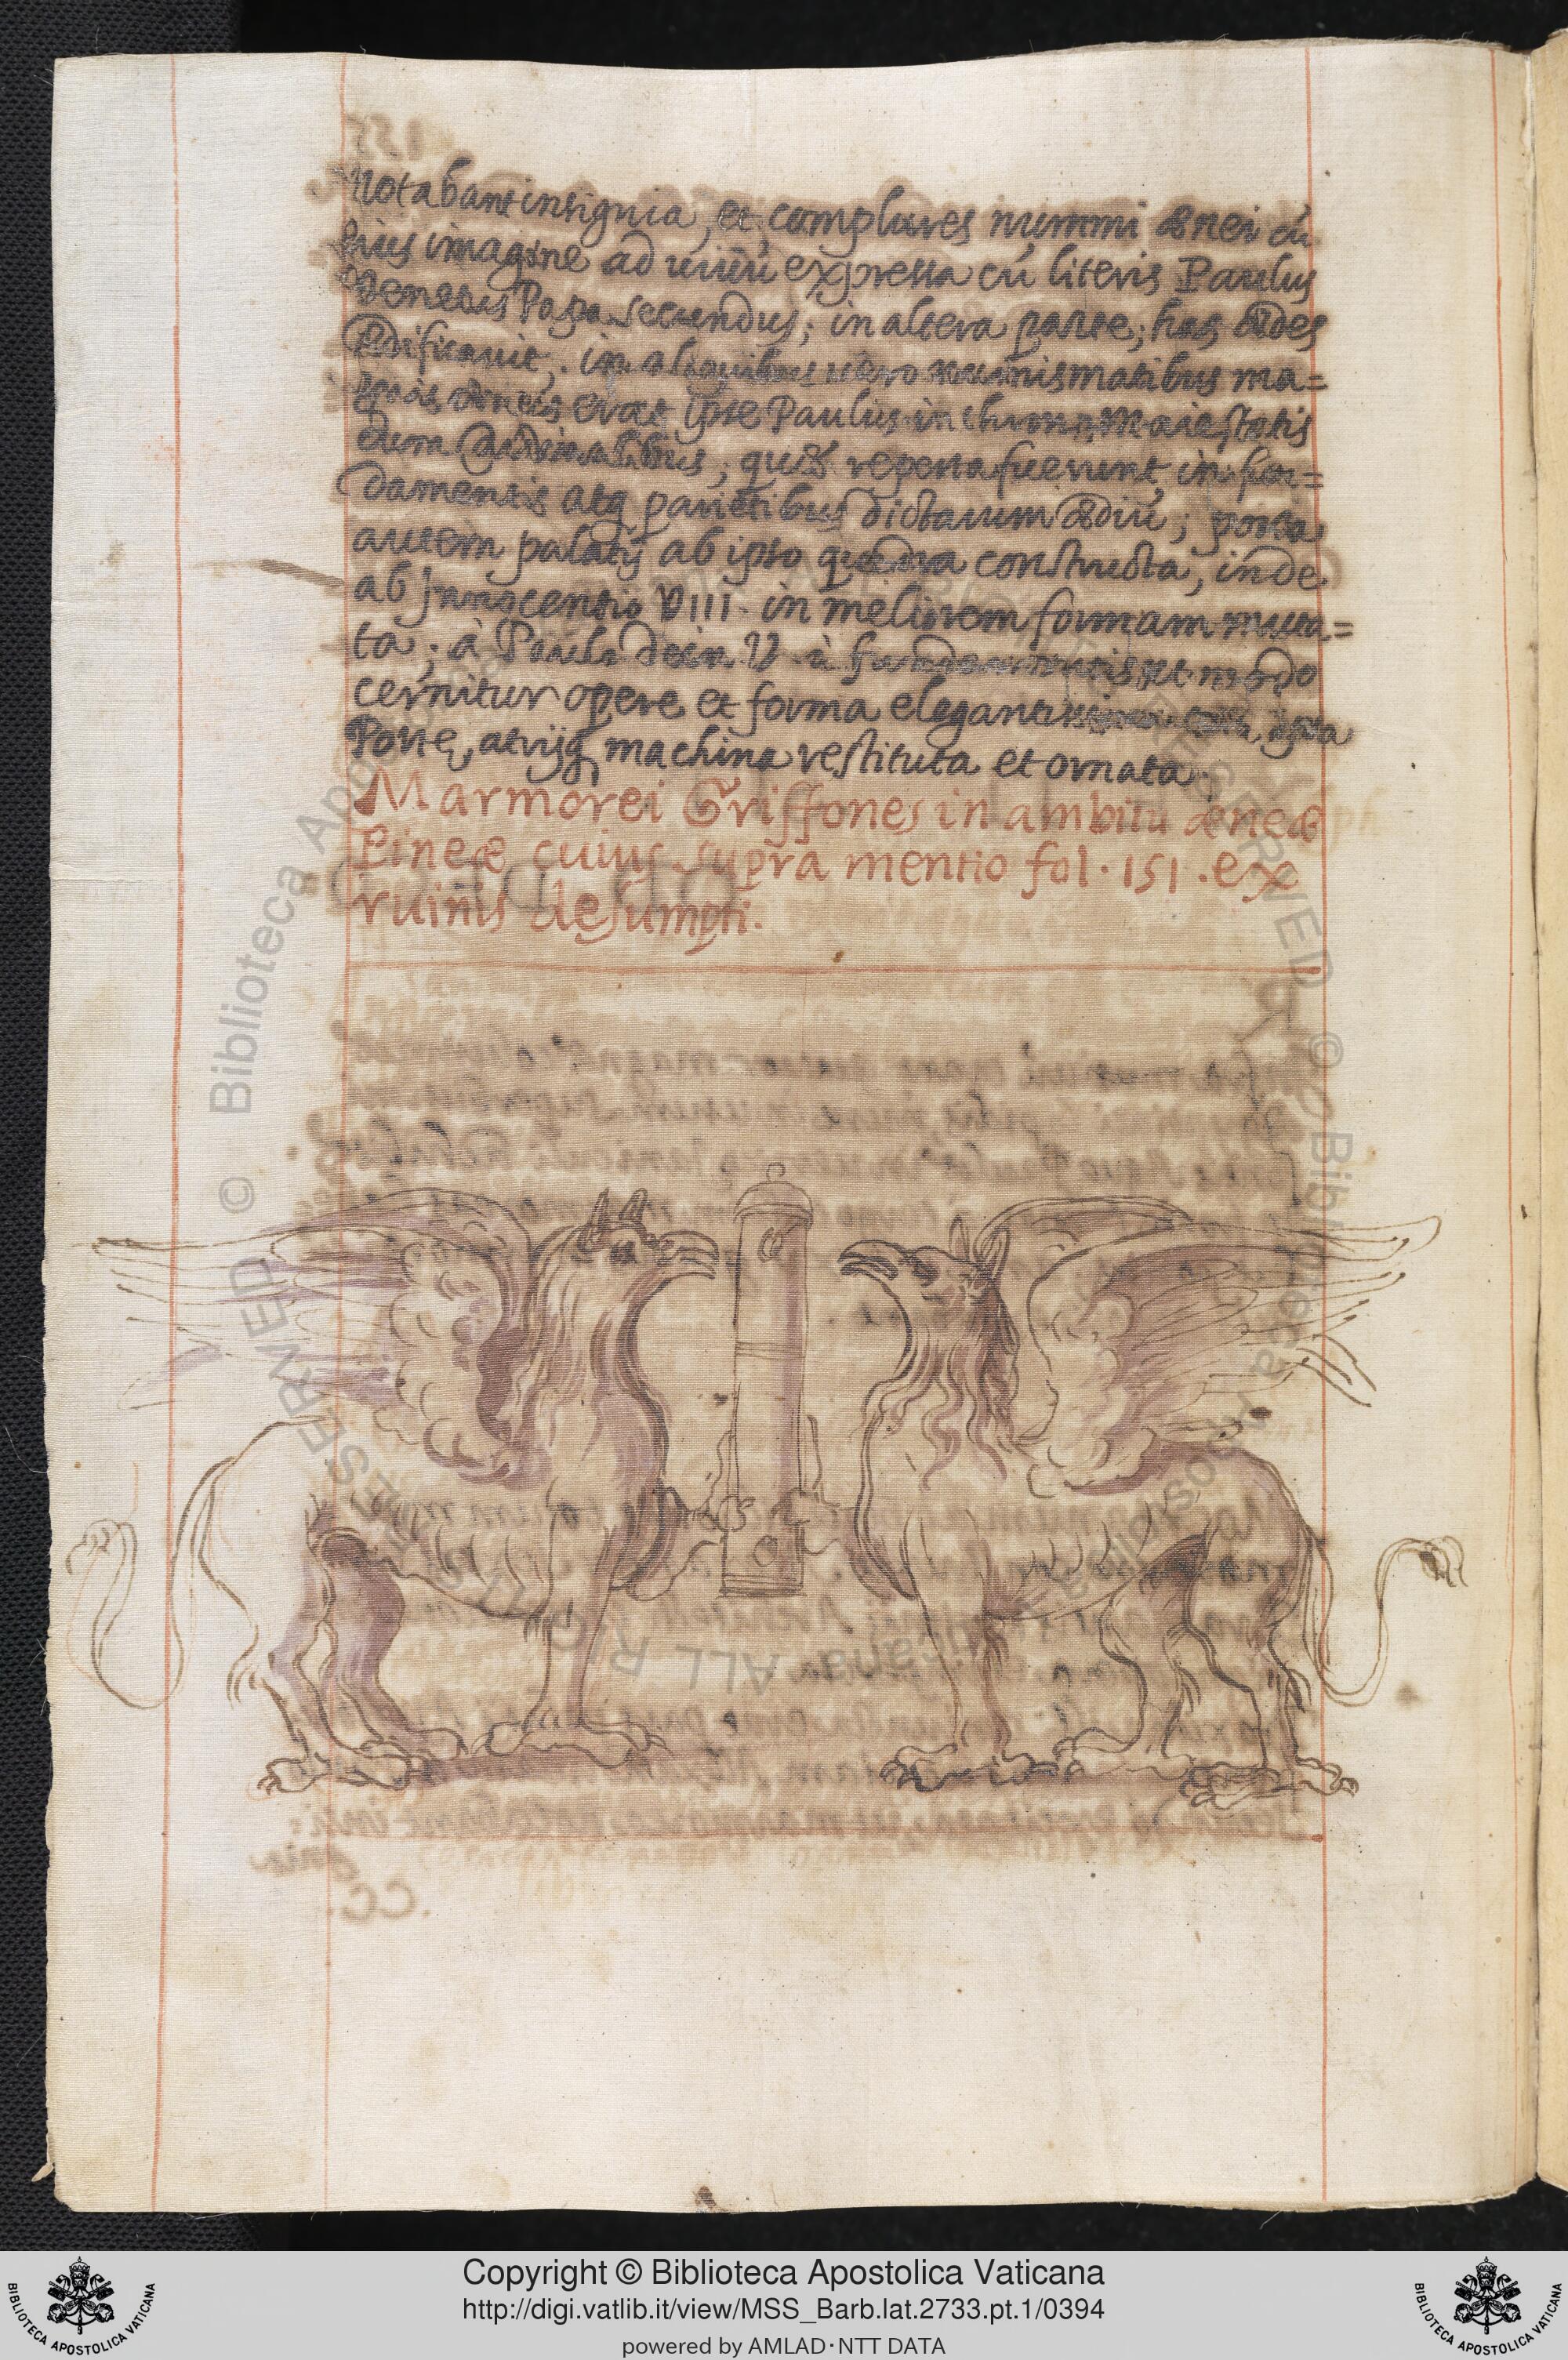 notabant insignia, et complures nummi ænei cū
eius imagine ad uiuū expressa cū literis Paulus
Venetus Papa secundus; in altera parte; has ædes
ædificauit; in aliquibus uero numismatibus ma=
gnis æneis erat ipse Paulus in throno Maiestatis
cum Cardinalibus; quæ reperta fuerunt in fun=
damentis atq parietibus dictarum ædiū; porta
autem palatij ab ipso constructa, inde
ab Innocentio VIII. in meliorem formam muta=
ta; à Paulo dein V. à fundamentis ut modo
cernitur opere et forma elegantissima ipsa
Porte, atrijq machina restituta et ornata.
Marmorei Griffones in ambitu æneæ
Pineæ cuius supra mentio fol. 151. ex
ruinis desumpti.
© Biblioteca Apostolica Vaticana ALL RIGHTS RESERVED
Copyright © Biblioteca Apostolica Vaticana
http://digi.vatlib.it/view/MSS_Barb.lat.2733.pt.1/0394
powered by AMLAD·NTT DATA
BIBLIOTECA APOSTOLICA VATICANA
BIBLIOTECA APOSTOLICA VATICANA